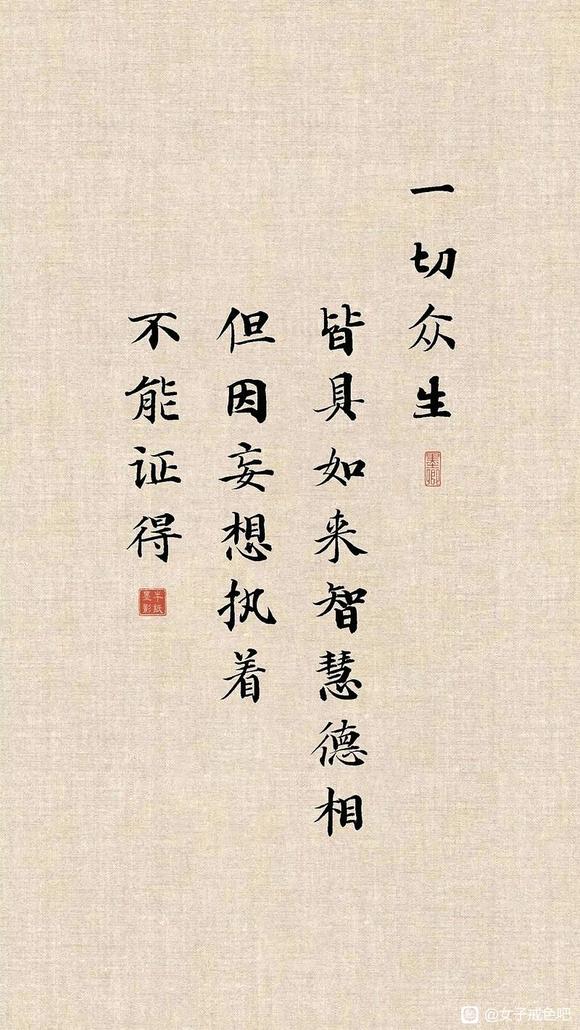 一切众生
皆具如来智慧德相
但因妄想执着
不能证得
@女子戒色吧